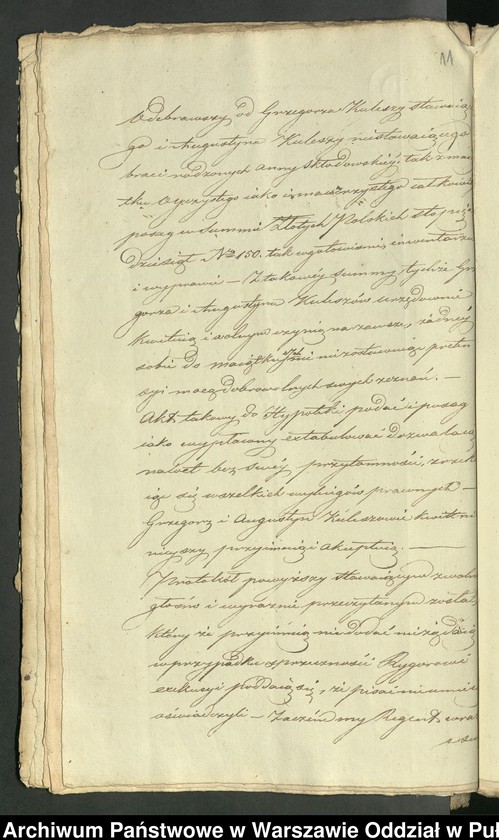 11
Odebrawszy od Grzegorza Kuleszy stawaią
go i Augustyna Kuleszy niestawaiącego
braci rodzonych Anny Skłodowskiéy tak z maią
tku Oyczystego iako i macierzystego całkowi
posag w summie Złotych Polskich sto pięć
dziesiąt Nro 150. tak w gotowiźnie, inwentarzu
i wyprawie — Z takowéy summy tychże Grze
gorza i Augustyna Kuleszów urzędownie
kwituią i wolnym czynią na zawsze, żadnéy
sobie do maiątku niezostawuiąc preten
syi mocą dobrowolnych swych zeznań. —
Akt takowy do Hypoteki podać i posag
iako wypłacony extabulować dozwalaią
nawet bez swéy przytomności, zrzek
aiąc się wszelkich wybiegów prawnych —
Grzegorz i Augustyn Kuleszowie kwit ni
nieyszy przyimuią i akceptuią. —
Protokół powyższy stawaiącym zwolna
głośno i wyraźnie przeczytanym został
który że przyimuią nic dodać nie żądaią
w przypadku sprzeczności Rygorowi
exekucyi poddaią się, że pisać nie umieią
oświadczyli — Zaczém my Regent wraz
Archiwum Państwowe w Warszawie Oddział w Pu